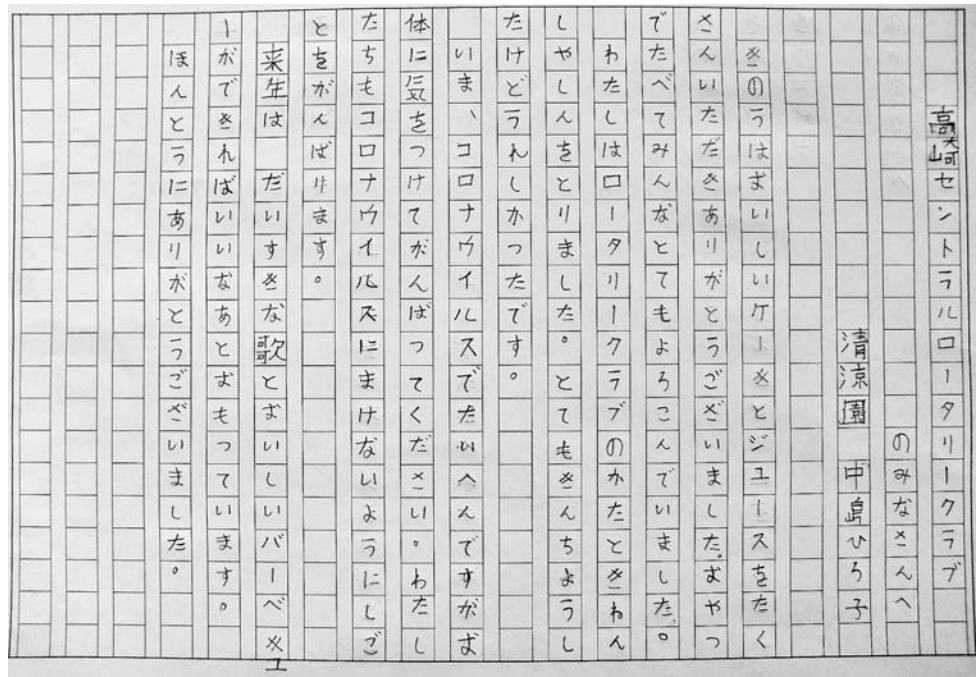 高崎セントラルロータリークラブ
のみなさんへ
清涼園　中島ひろ子
きのうはおいしいケーキとジュースをたく
さんいただきありがとうございました。おやつ
でたべてみんなとてもよろこんでいました。
わたしはロータリークラブのかたときねん
しゃしんをとりました。とてもきんちょうし
たけどうれしかったです。
いま、コロナウイルスでたいへんですがお
体に気をつけてがんばってください。わたし
たちもコロナウイルスにまけないようにしご
とをがんばります。
来年は　だいすきな歌とおいしいバーベキュ
ーができればいいなあとおもっています。
ほんとうにありがとうございました。